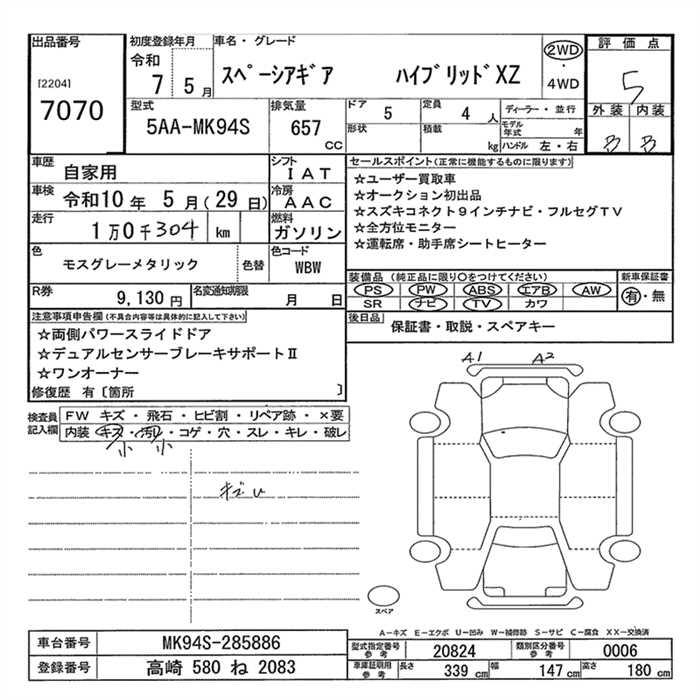 出品番号 初度登録年月 車名・グレード 評価点
[2204] 7070
令和 7 5月 スペーシアギア ハイブリッドXZ 2WD ・ 4WD 5
型式 5AA-MK94S 排気量 657 CC ドア 5 定員 4 人 ディーラー・並行 外装 内装
形状 積載 kg モデル年式 年 ハンドル 左・右 B B
車歴 自家用 シフト IAT
車検 令和10年 5月(29日) 冷房 AAC
走行 1万0千304 km 燃料 ガソリン
色 モスグレーメタリック 色替 色コード WBW
R券 9,130円 名変通知期限 月 日
セールスポイント(正常に機能するものに限ります)
☆ユーザー買取車
☆オークション初出品
☆スズキコネクト9インチナビ・フルセグTV
☆全方位モニター
☆運転席・助手席シートヒーター
装備品 (純正品に限り○をつけてください) 新車保証書
PS PW ABS エアB AW 有・無
SR ナビ TV カワ
後日品 保証書・取説・スペアキー
注意事項申告欄(不具合内容等は具体的に記入して下さい)
☆両側パワースライドドア
☆デュアルセンサーブレーキサポートⅡ
☆ワンオーナー
修復歴 有〔箇所 〕
検査員記入欄 FW キズ・飛石・ヒビ割・リペア跡・×要
内装 キズ・汚レ・コゲ・穴・スレ・キレ・破レ
小 小
A1 A2
スペア
A-キズ E-エクボ U-凹み W-補修跡 S-サビ C-腐食 XX-交換済
車台番号 MK94S-285886
登録番号 高崎 580 ね 2083
型式指定番号 参考 20824 類別区分番号 参考 0006
車庫証明用 参考 長さ 339 cm 幅 147 cm 高さ 180 cm